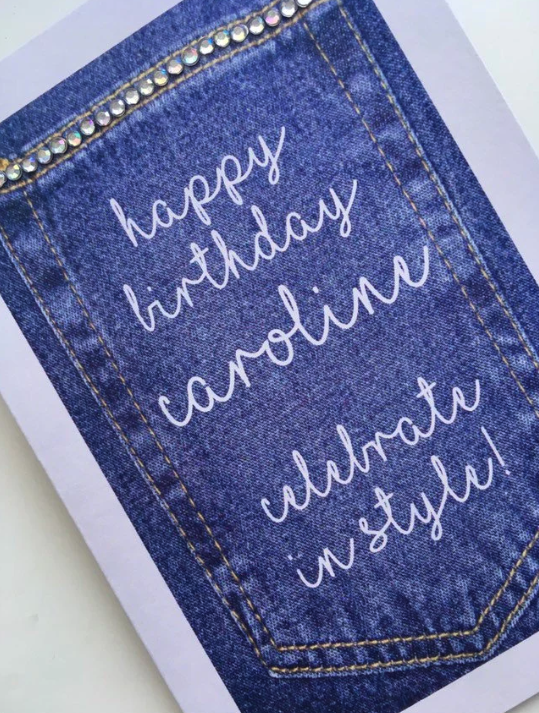 happy
birthday
caroline
celebrate
in style!